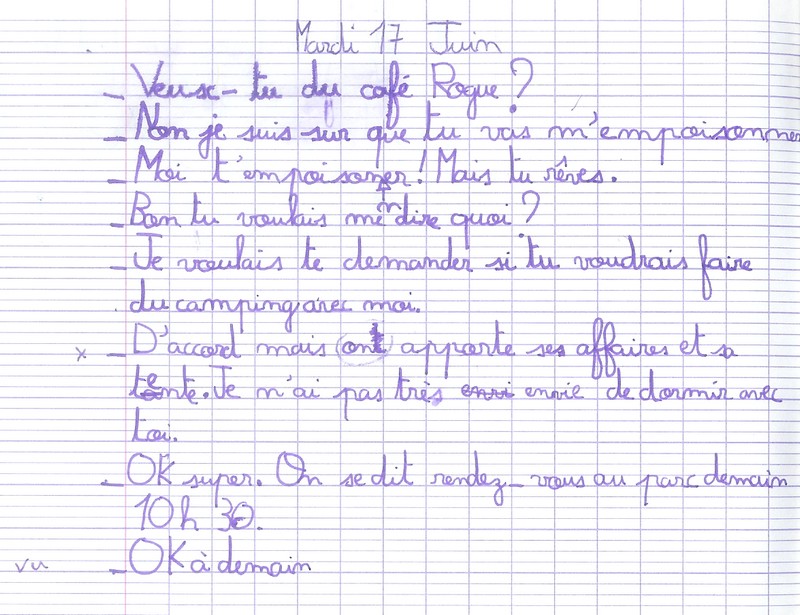 Mardi 17 Juin
_ Veux-tu du café Rogue ?
_ Non je suis sûr que tu vas m'empoisonner
_ Moi t'empoisonner ! Mais tu rêves.
_ Bon tu voulais me dire quoi ?
_ Je voulais te demander si tu voudrais faire
du camping avec moi.
x _ D'accord mais (ont) apporte ses affaires et sa
tente. Je n'ai pas très envi envie de dormir avec
toi.
_ OK super. On se dit rendez-vous au parc demain
10 h 30.
vu _ OK à demain